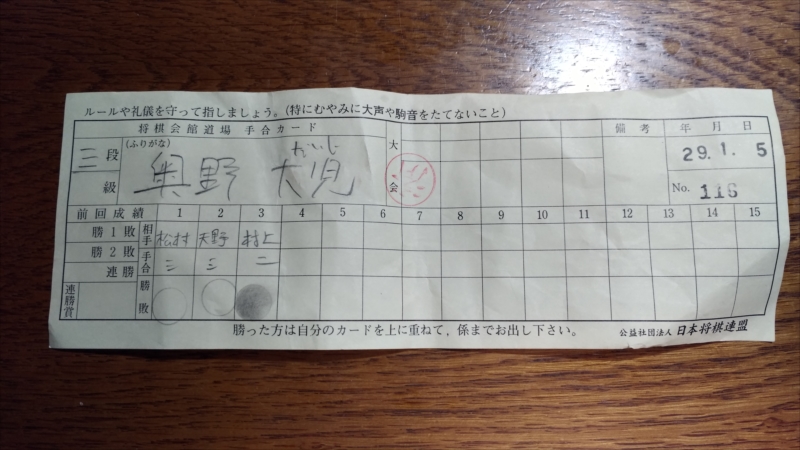 ルールや礼儀を守って指しましょう。(特にむやみに大声や駒音をたてないこと)
将棋会館道場 手合カード 大会 備考 年 月 日
三段 級 (ふりがな) たいじ
奥野 大児
29.1.5
No. 116
前回成績 1 2 3 4 5 6 7 8 9 10 11 12 13 14 15
勝1敗 相手 松村 天野 村上
勝2敗 手合 三 三 二
連勝
連勝賞 勝敗
勝った方は自分のカードを上に重ねて,係までお出し下さい。 公益社団法人 日本将棋連盟